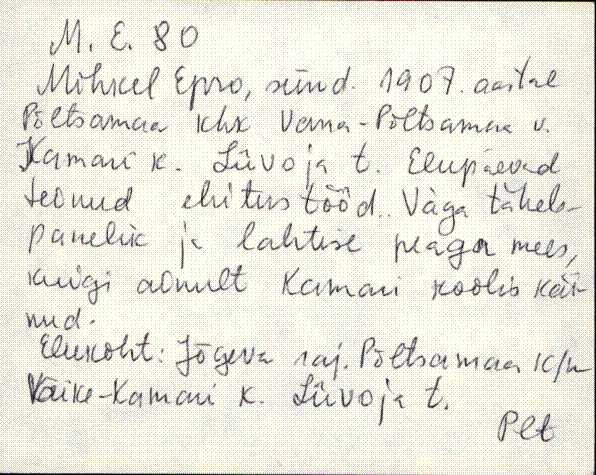 M. E. 80
Mihkel Epro, sünd. 1907. aastal
Põltsamaa khk Vana-Põltsamaa v.
Kamari k. Liivoja t. Elupäevad
teonud ehitustööd. Väga tähele-
panelik ja lahtise peaga mees,
kuigi ainult Kamari koolis käi-
nud.
Elukoht: Jõgeva raj. Põltsamaa k/n
Väike-Kamari k. Liivoja t.
Plt